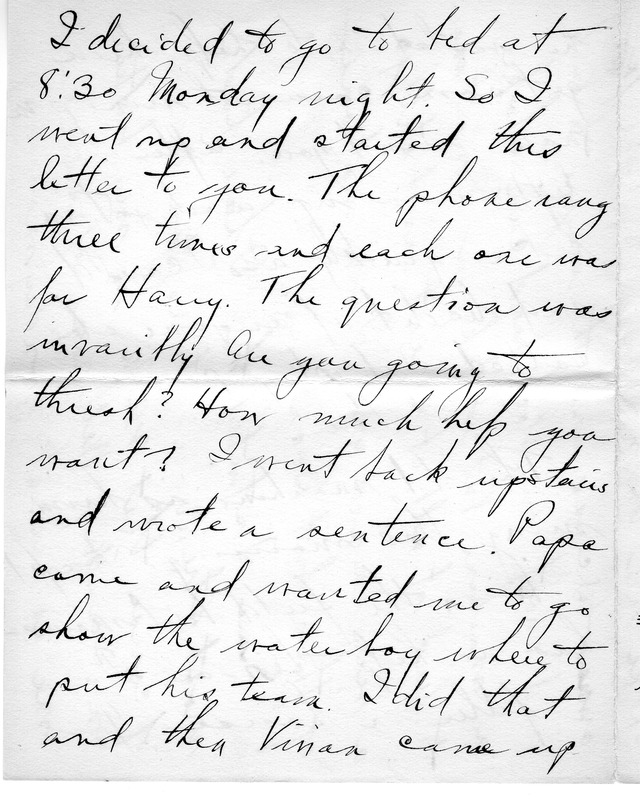 I decided to go to bed at
8:30 Monday night. So I
went up and started this
letter to you. The phone rang
three times and each one was
for Harry. The question was
invaritly Are you going to
thresh? How much help you
want? I went back upstairs
and wrote a sentence. Papa
came and wanted me to go
show the water boy where to
put his team. I did that
and then Vivian came up